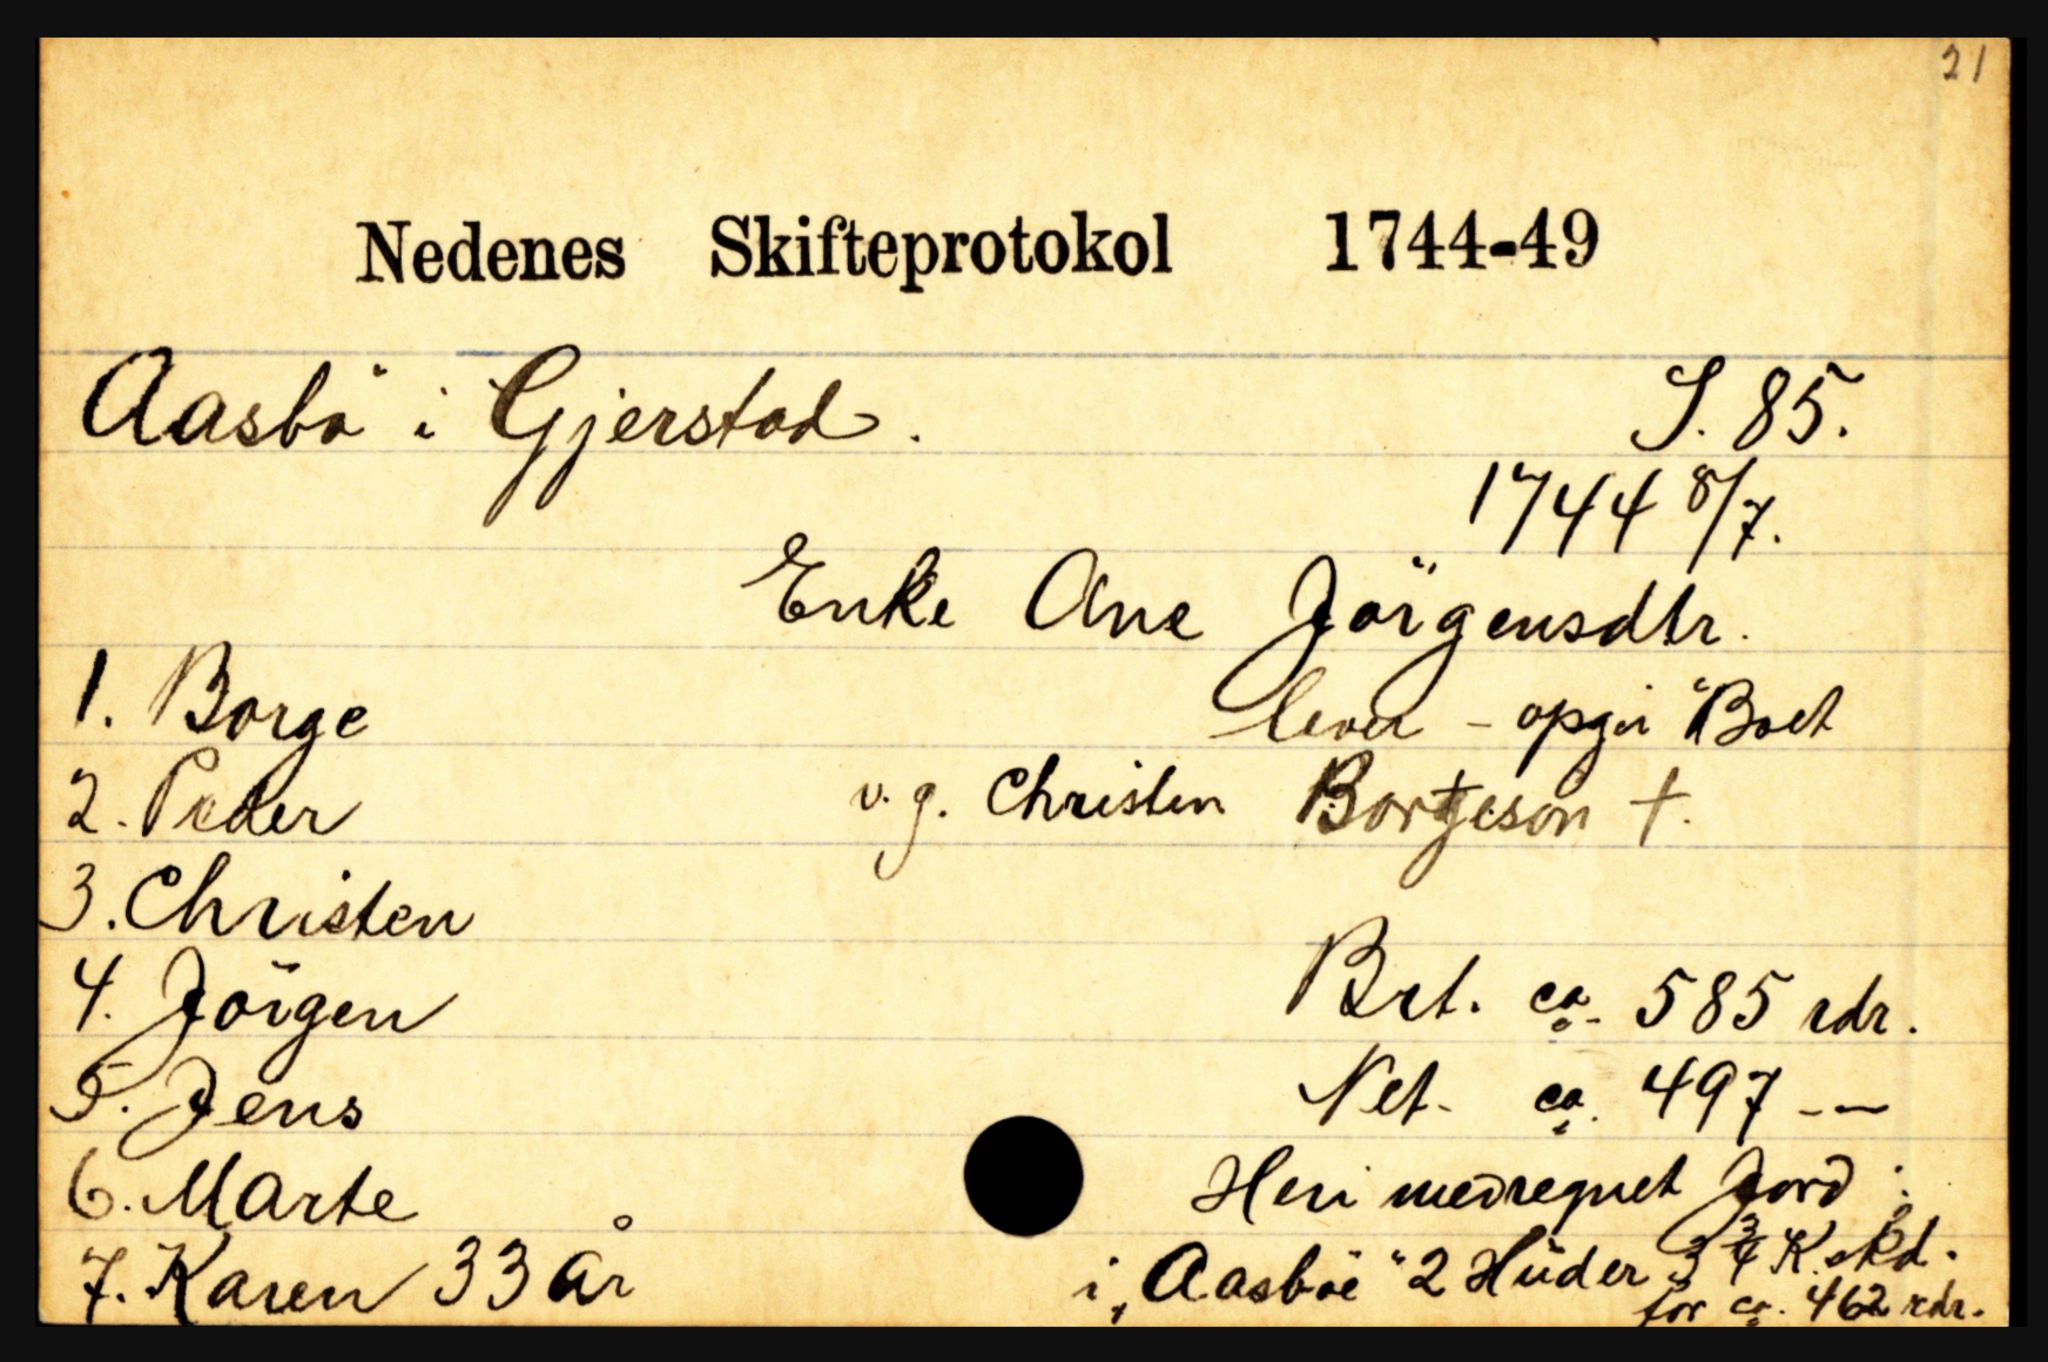 21
Nedenes Skifteprotokol 1744-49
Aasbö i Gjerstad. S. 85.
1744 8/7.
Enke Ane Jörgensdtr.
1. Borge lever - opgir "Boet
2. Peder v.g. Christen Borgeson †.
3. Christen
4. Jörgen Brt. ca. 585 rdr.
5. Jens Net. ca. 497 -—
6. Marte Heri medregnet Jord :
7. Karen 33 år i „Aasböe" 2 Huder 3 3/4 K.skd.
for ca. 462 rdr.